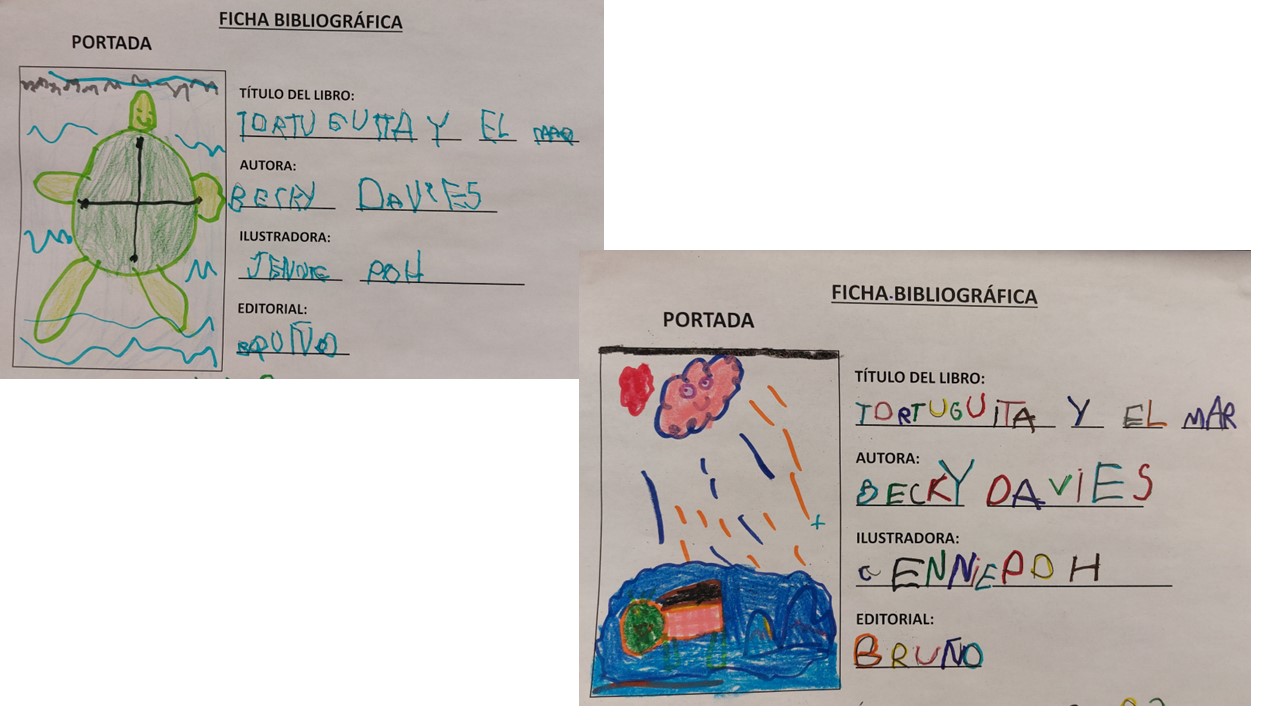 FICHA BIBLIOGRÁFICA
PORTADA
TÍTULO DEL LIBRO:
TORTUGUITA Y EL MAR
AUTORA:
BECKY DAVIES
ILUSTRADORA:
JENNIE POH
EDITORIAL:
BRUÑO
FICHA BIBLIOGRÁFICA
PORTADA
TÍTULO DEL LIBRO:
TORTUGUITA Y EL MAR
AUTORA:
BECKY DAVIES
ILUSTRADORA:
JENNIE POH
EDITORIAL:
BRUÑO